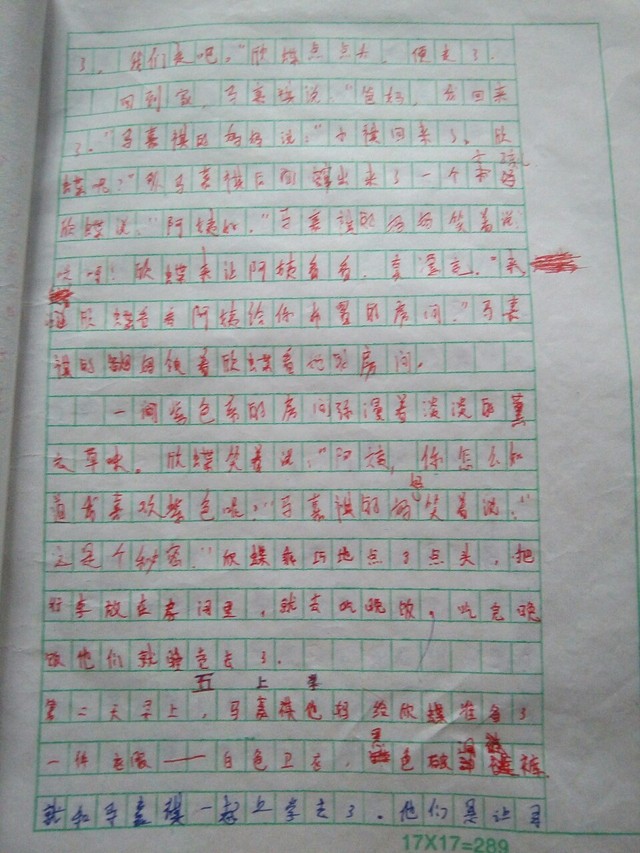 了。我们走吧。"欣蝶点点头，便走了。
回到家，马嘉祺说："爸妈，我回来
了。"马嘉祺的妈妈说："小祺回来了，欣
蝶呢？"从马嘉祺后面蹿出来了一个女孩
欣蝶说："阿姨好。"马嘉祺的妈妈笑着说
哎呀！欣蝶来让阿姨看看，来
欣蝶看看阿姨给你布置的房间。"马嘉
祺的妈妈领着欣蝶看她的房间。
一间紫色系的房间弥漫着淡淡的薰
衣草味。欣蝶笑着说："阿姨，你怎么知
道我喜欢紫色呢？"马嘉祺的妈妈笑着说："
这是个秘密。"欣蝶乖巧地点了点头，把
行李放在房间里，就去吃晚饭，吃完晚
饭他们就睡觉去了。
五 上 学
第二天早上，马嘉祺他妈给欣蝶准备了
一件衣服——白色卫衣，黑色破洞裤
就和马嘉祺一起上学去了。他们是让司
17X17=289